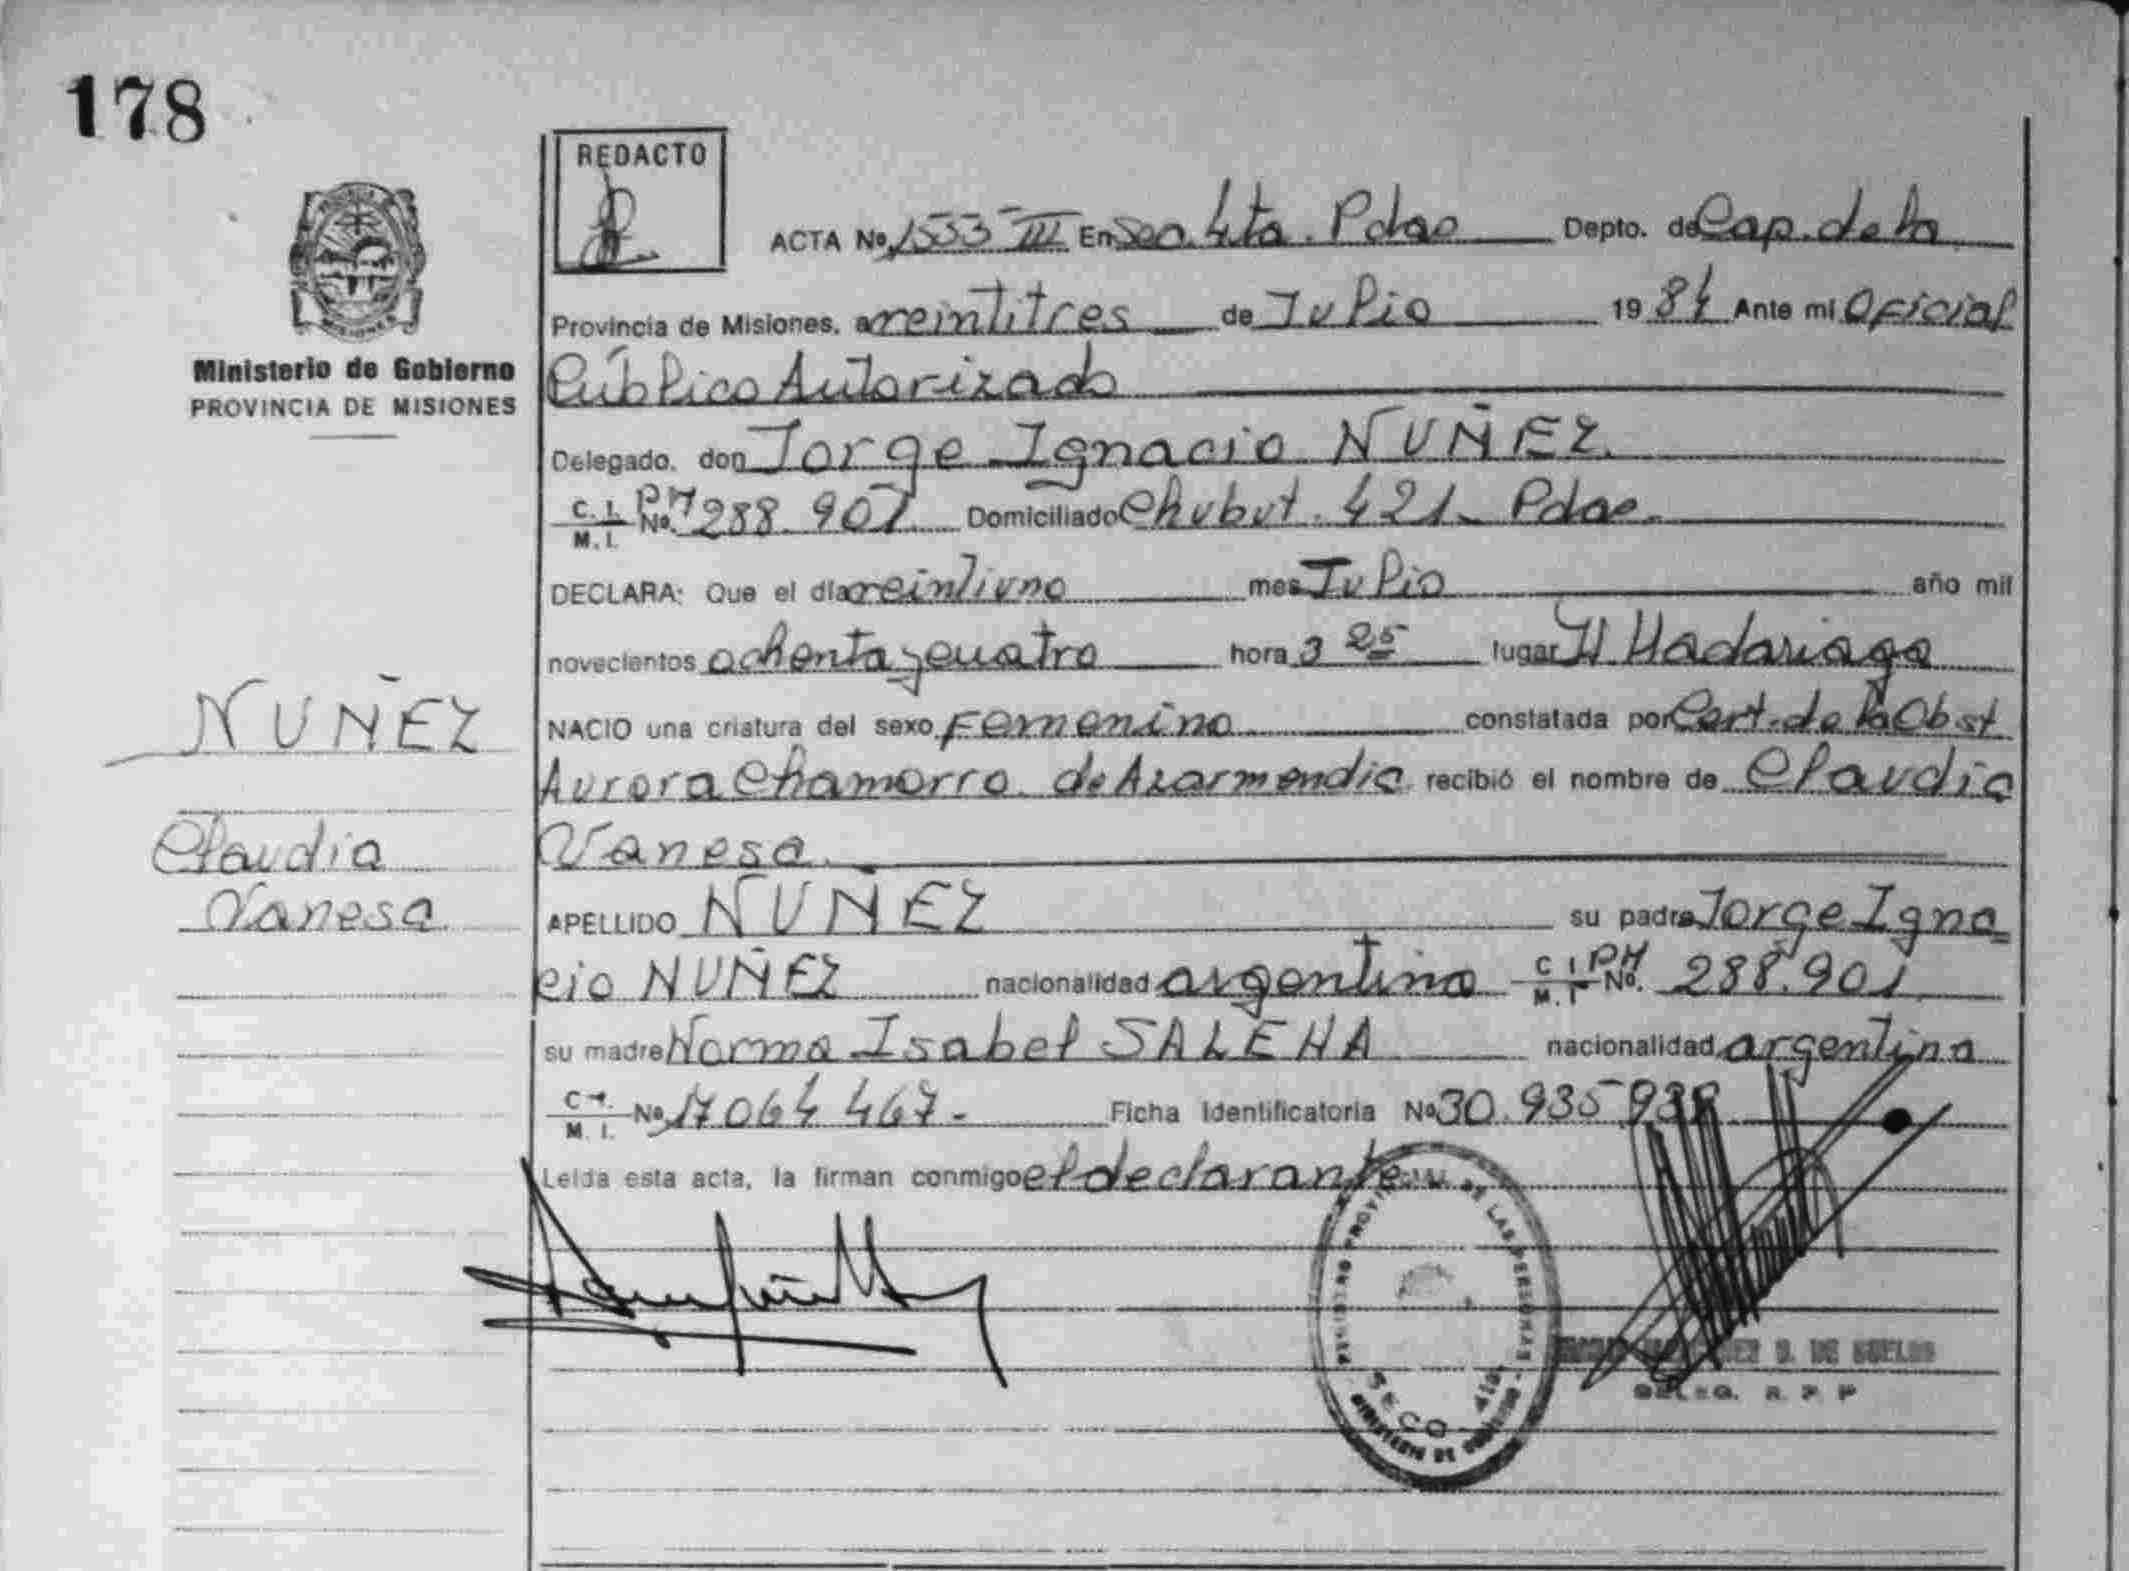 178
REDACTO
ACTA Nº 1533 III En Secc. 4ta. Pdas Depto. de Cap. de la
Provincia de Misiones, a veintitres de Julio 1984 Ante mi Oficial
Ministerio de Gobierno
PROVINCIA DE MISIONES
Público Autorizado
Delegado, don Jorge Ignacio NUÑEZ.
C. I. M. I. PM Nº 288.901 Domiciliado Chubut. 421 - Pdas.
DECLARA: Que el día veintiuno mes Julio año mil
novecientos ochenta y cuatro hora 3 25 lugar H Madariaga
NUÑEZ
NACIO una criatura del sexo Femenino constatada por Cert. de la Obst
Aurora Chamorro de Azarmendia recibió el nombre de Claudia
Claudia
Vanesa.
Vanesa.
APELLIDO NUÑEZ su padre Jorge Igna
cio NUÑEZ nacionalidad argentina C I M. I PM Nº. 288.901
su madre Norma Isabel nacionalidad argentina
C I. M. I. Nº 17 064 467 - Ficha Identificatoria Nº 30.935
Leida esta acta, la firman conmigo el declarante
REGISTRO PROVINCIAL DE LAS PERSONAS
SECC 4ta
MINISTERIO DE GOBIERNO
DE SUELDO
DELEG. R. P. P